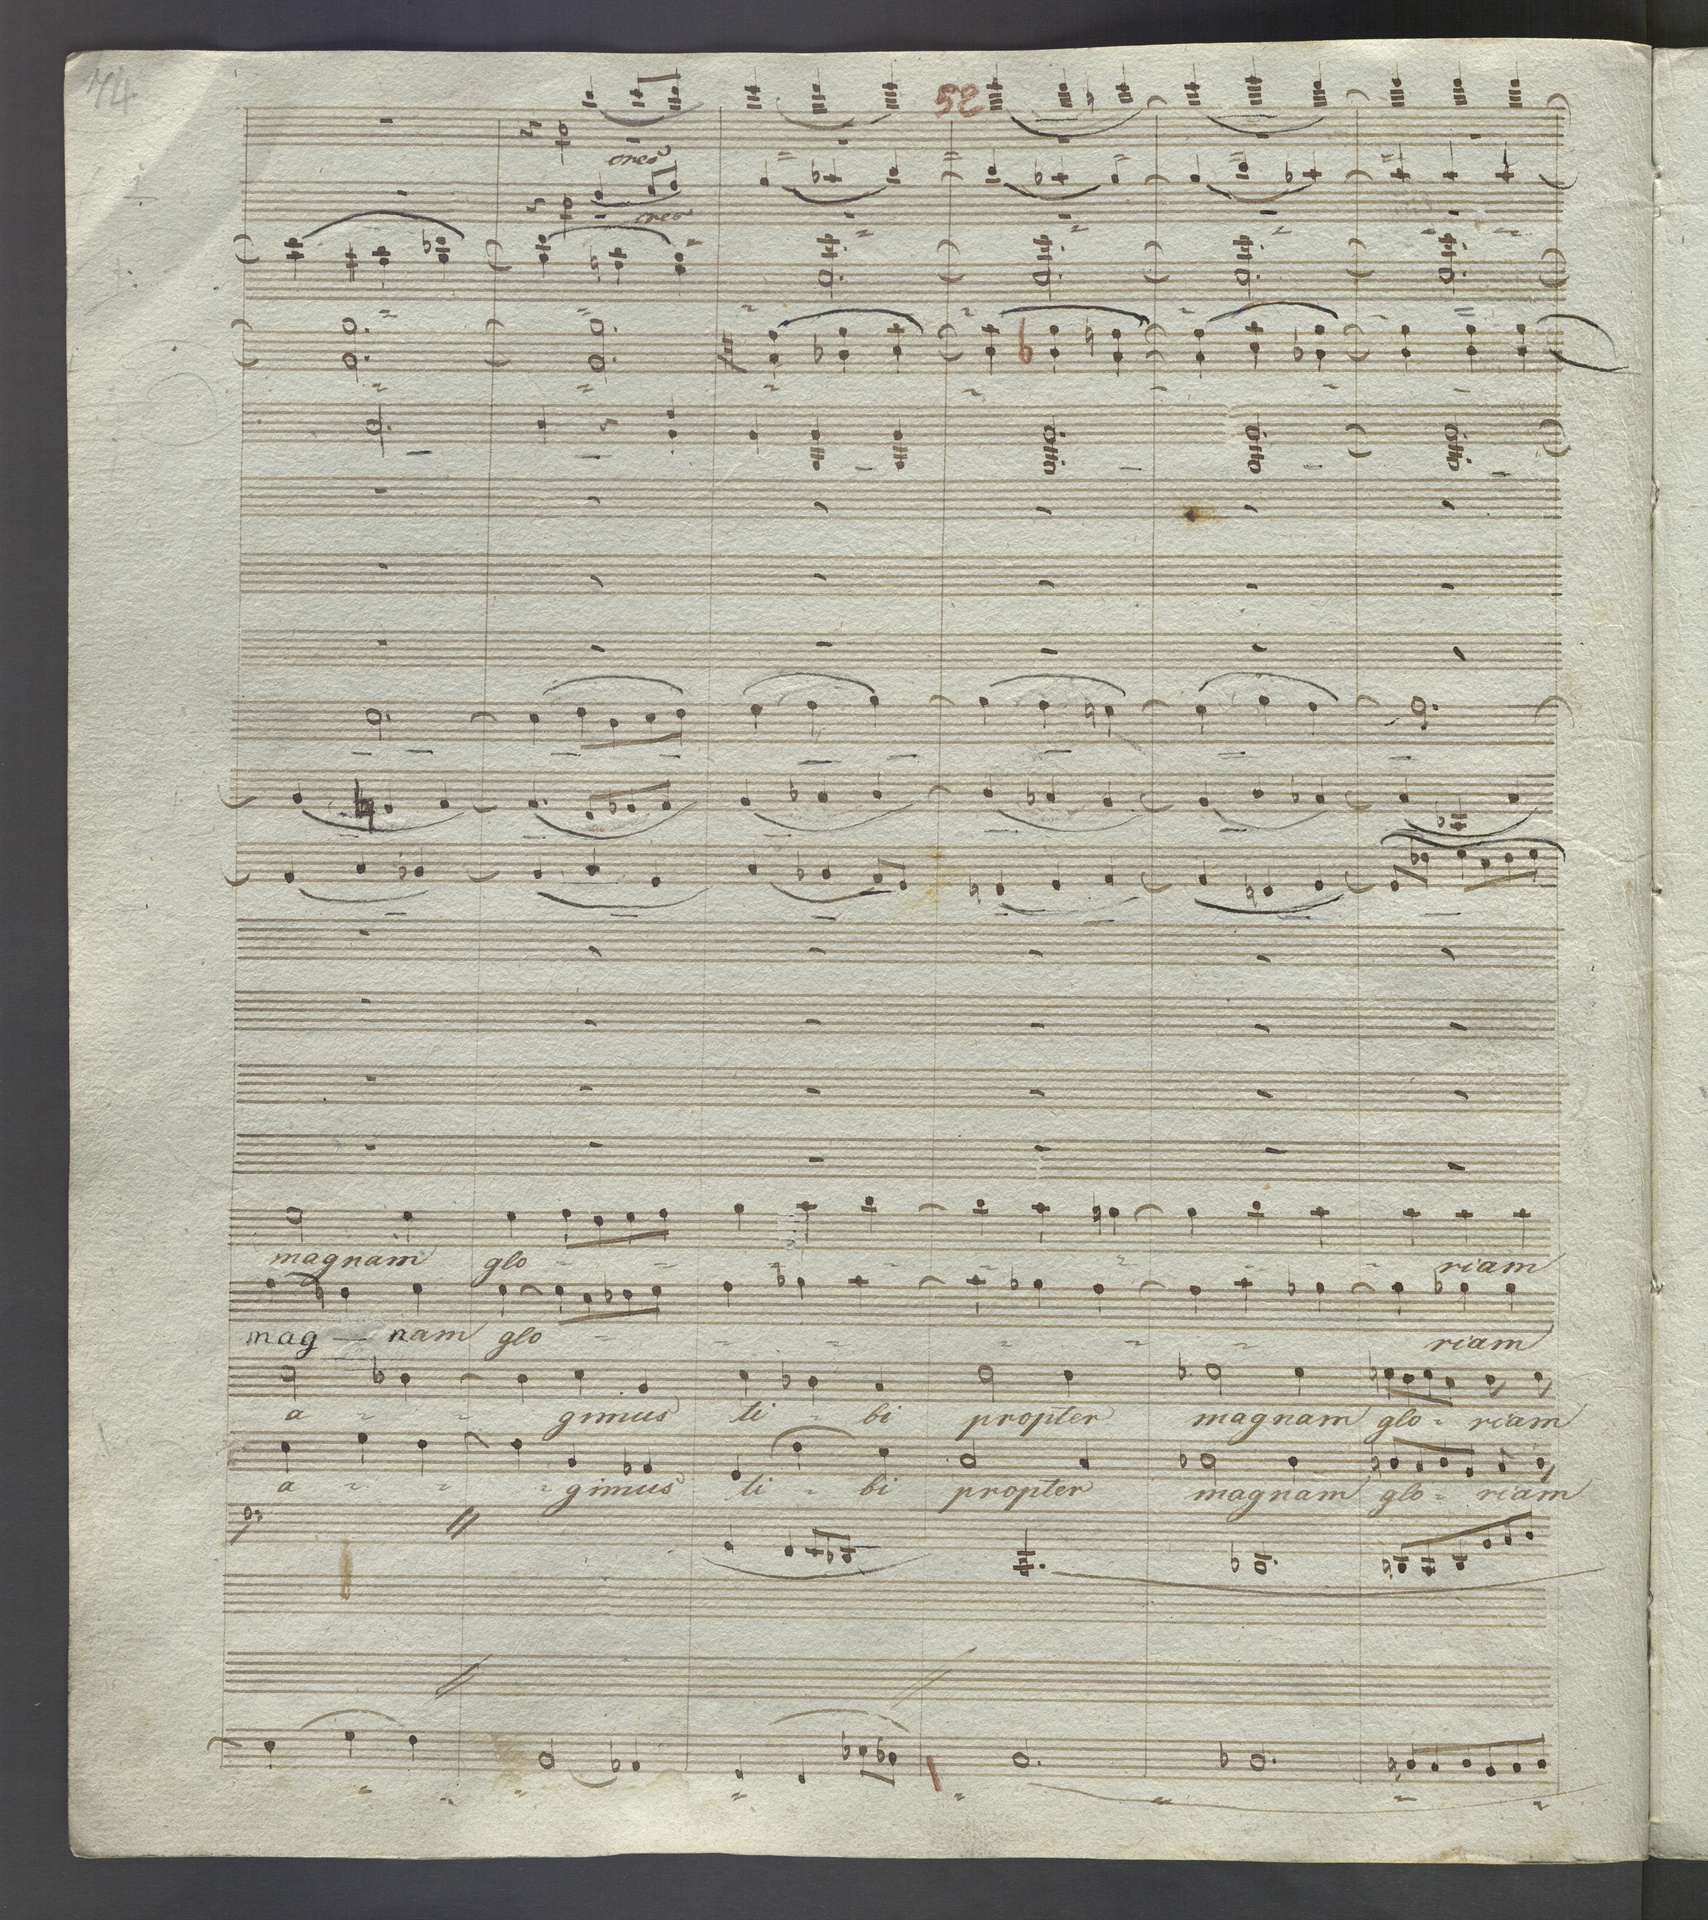 74
52
cres
cres
magnam glo - - - - - - riam
mag - nam glo - - - - - - riam
a - - gimus ti - bi propter magnam glo - riam
a - - - gimus ti - bi propter magnam glo - riam